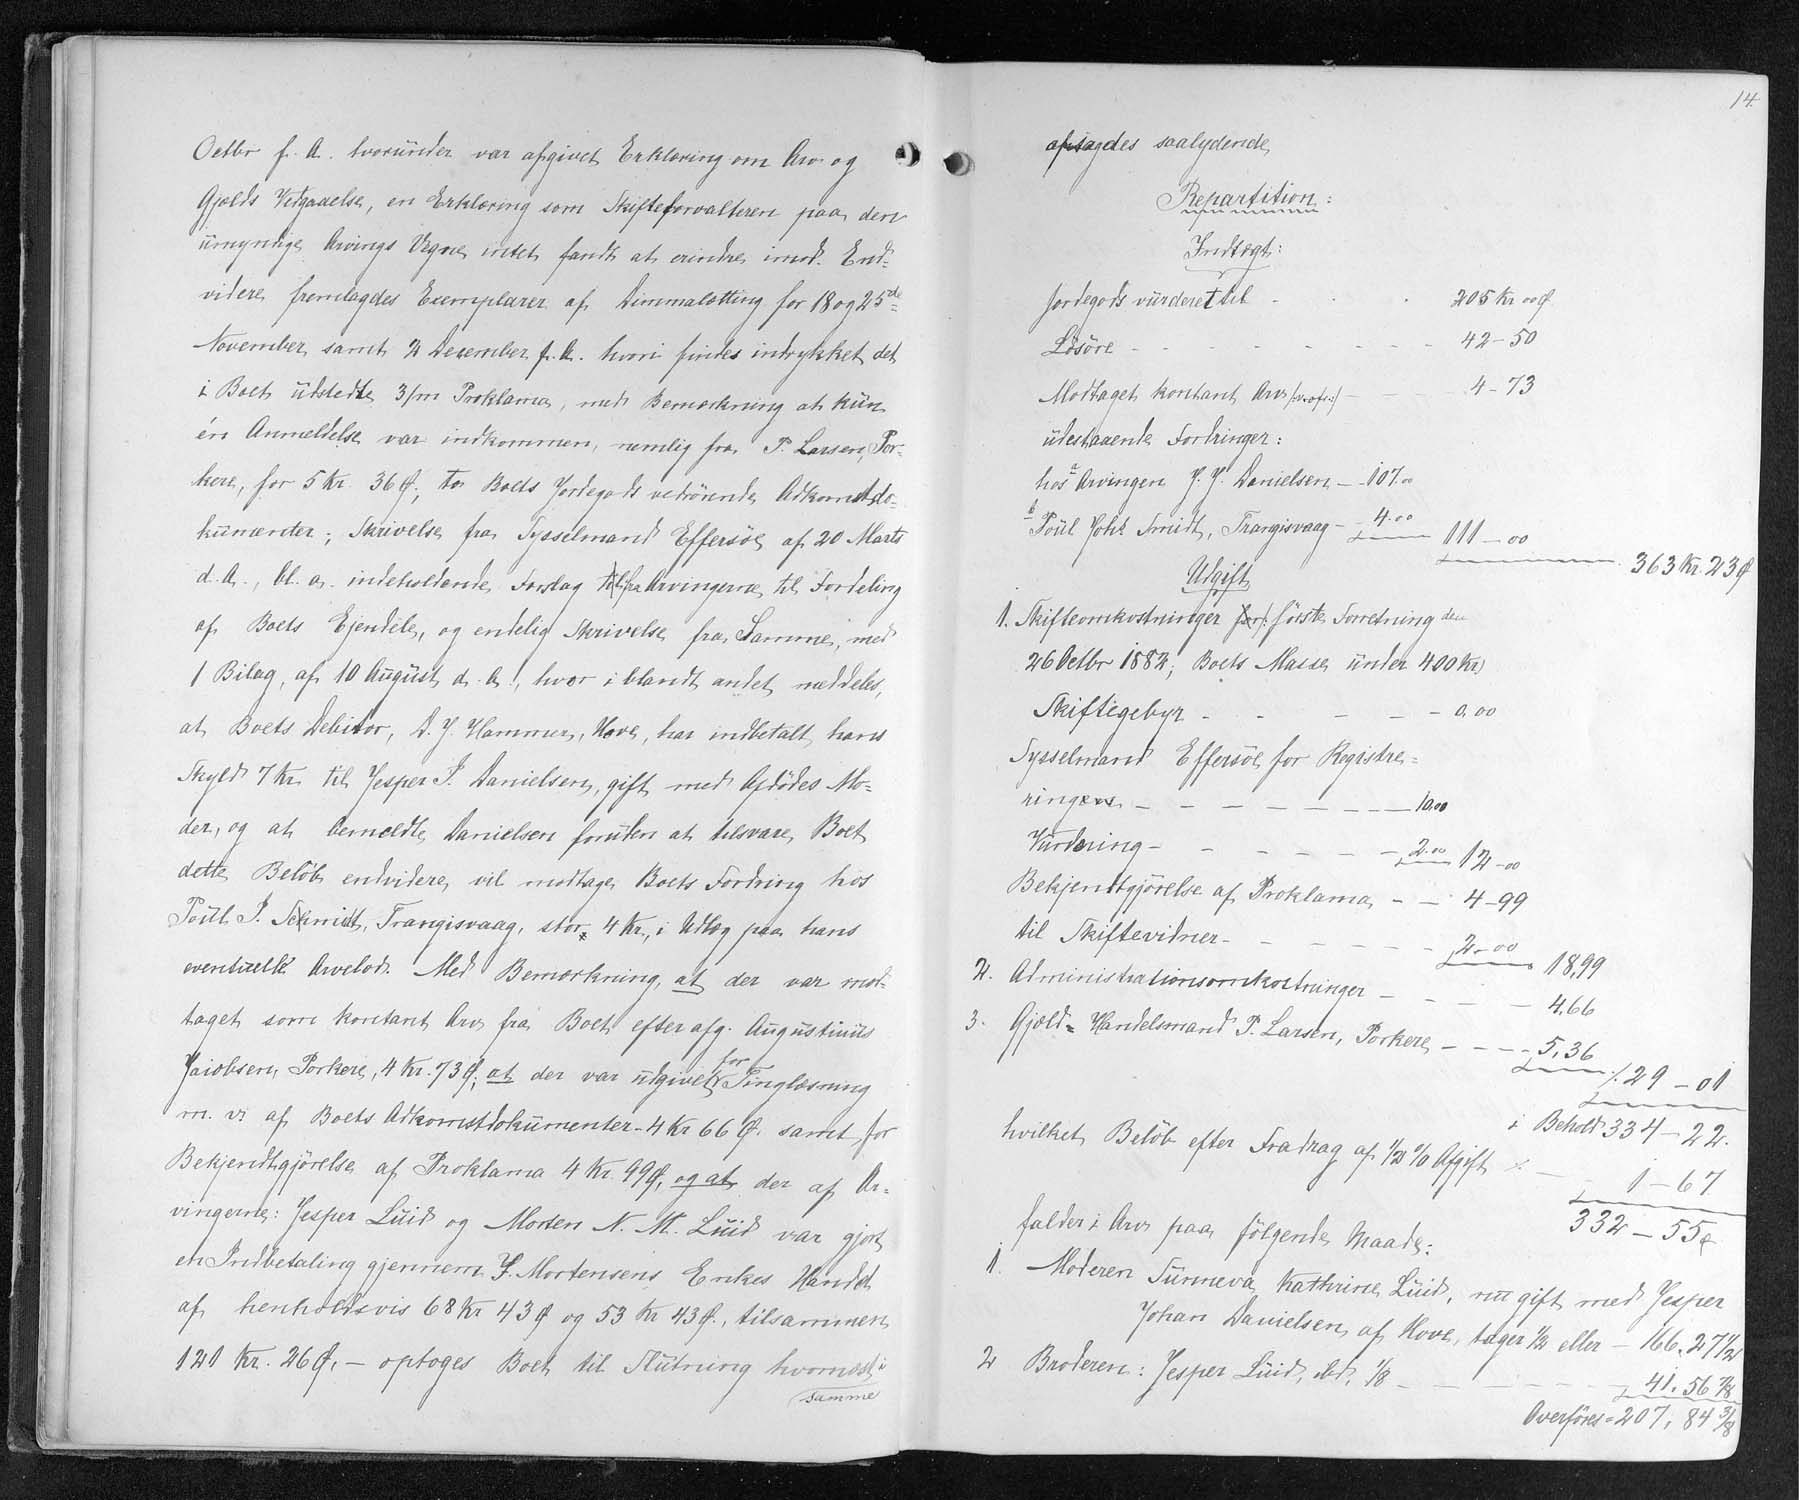 Octbr f. A. hvorunder var afgivet Erklæring om Arv og
Gjælds Vedgaaelse, en Erklæring som Skifteforvalteren paa den
umyndige Arvings Vegne intet fandt at erindre imod. End=
videre fremlagdes Exemplarer af Dimmalætting for 18 og 25de
November samt 2 December f. A. hvori findes indrykket det
i Boet udstedte 3/m Proklama, med Bemærkning at kun
én Anmeldelse var indkommen, nemlig fra P. Larsen, Por=
kere, for 5 Kr. 36 Ø; to Boets Jordegods vedrørende Adkomstdo=
kumenter; Skrivelse fra Sysselmand Effersöe af 20 Marts
d. A., bl. a. indeholdende Forslag fra Arvingerne til Fordeling
af Boets Ejendele, og endelig Skrivelse fra Samme, med
1 Bilag, af 10 August d. A., hvor i blandt andet meddeles,
at Boets Debitor, D. J. Hammer, Hove, har indbetalt hans
Skyld 7 Kr. til Jesper J. Danielsen, gift med Afdødes Mo=
der, og at bemeldte Danielsen foruden at tilsvare Boet
dette Beløb endvidere vil modtage Boets Fordring hos
Poul J. Schmidt, Trangisvaag, stor 4 Kr., i Udlæg paa hans
eventuelle Arvelod. Med Bemærkning, at der var mod=
taget som kontant Arv fra Boet efter afg. Augustinus
Jacobsen, Porkere, 4 Kr. 73 Ø; at der var udgivet for Tinglæsning
m. v. af Boets Adkomstdokumenter - 4 Kr 66 Ø. samt for
Bekjendtgjörelse af Proklama 4 Kr. 99 Ø, og at der af Ar=
vingerne: Jesper Lüid og Morten N. M. Lüid var gjort
en Indbetaling gjennem J. Mortensens Enkes Handel
af henholdsvis 68 Kr 43 Ø og 53 Kr 43 Ø., tilsammen
121 Kr. 26 Ø, — optoges Boet til Slutning hvornæst i
samme
14.
afsagdes saalydende
Repartition:
Indtægt:
Jordegods vurderet til - - - 205 Kr 00 Ø
Lösöre - - - - - - - 42 - 50
Modtaget kontant Arv /: v. ofr :/ - - - 4 - 73
udestaaende Fordringer:
hos a Arvingen J. J. Danielsen - - 107.00
b Poul Johs Smidt, Trangisvaag - - 4.00 111 - 00
363 Kr. 23 Ø
Udgift
1. Skifteomkostninger første Forretning den
26 Octbr 1882; Boets Masse under 400 Kr)
Skiftegebyr - - - - - 0.00
Sysselmand Effersöe for Registre=
ringen - - - - - - - 10.00
Vurdering - - - - - - 2.00 12 - 00
Bekjendtgjörelse af Proklama - - 4 - 99
til Skiftevidner - - - - - 2 - 00 18,99
2. Administrationsomkostninger - - - - 4,66
3. Gjæld = Handelsmand P. Larsen, Porkere - - - - 5,36
÷ 29 - 01
i Behold 334 - 22.
hvilket Beløb efter Fradrag af 1/2 % Afgift ÷ - 1 - 67
332 - 55 ø
falder i Arv paa følgende Maade:
1. Moderen Sunneva Kathrine Lüid, nu gift med Jesper
Johan Danielsen af Hove, tager 1/2 eller - 166. 27 1/2
2 Broderen: Jesper Lüid, ibd., 1/8 - - - - - 41. 56 7/8
Overføres = 207, 84 3/8